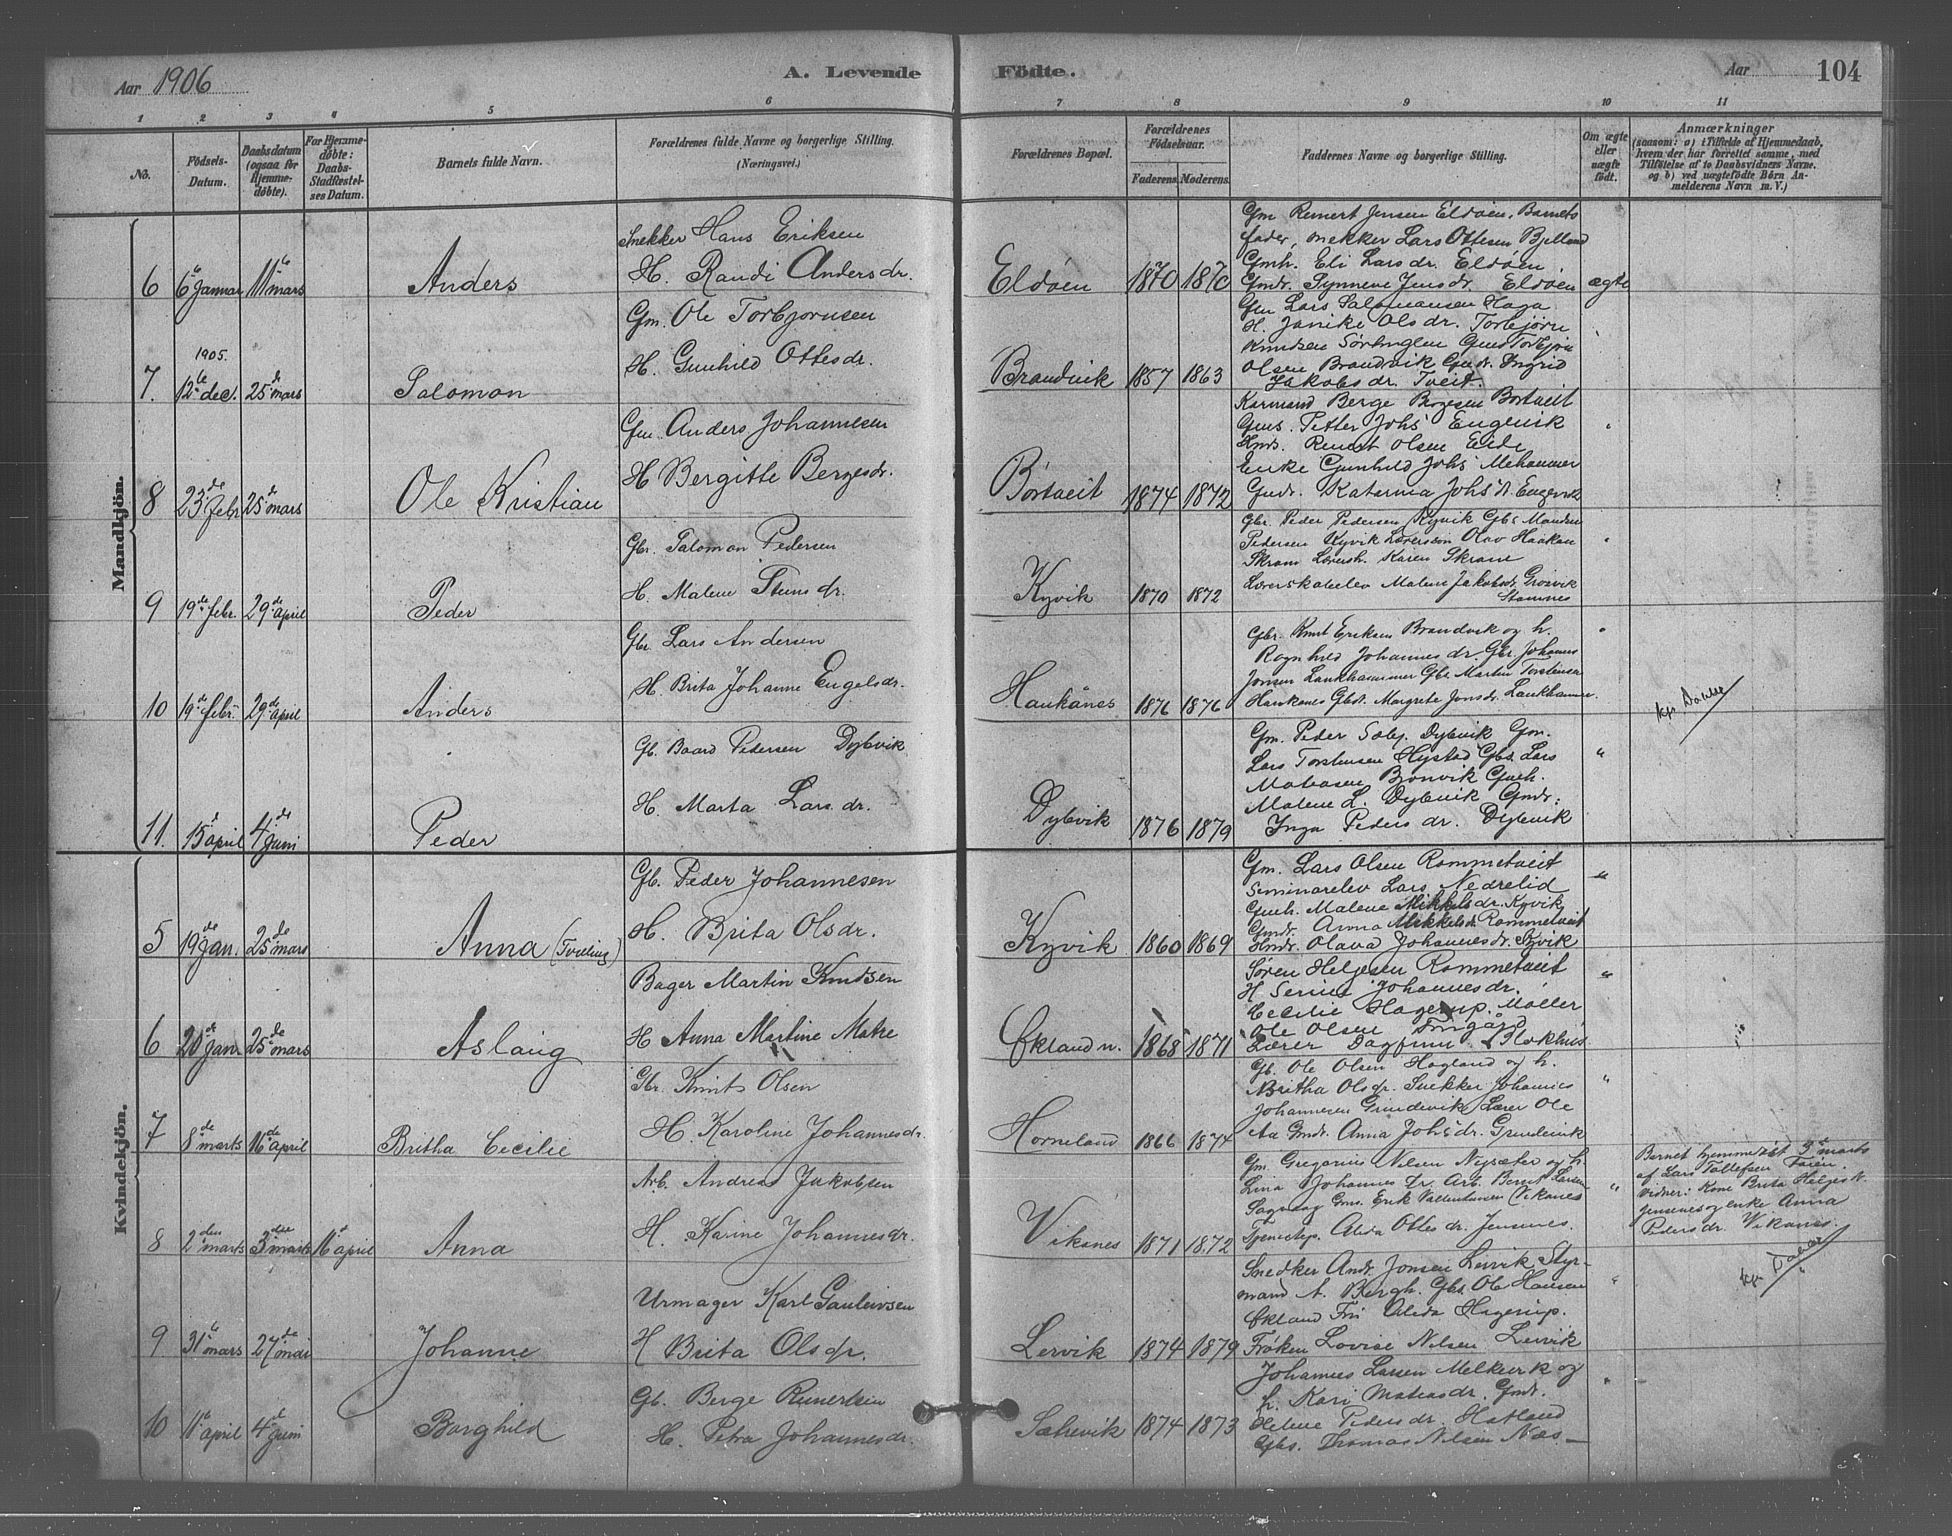 Aar 1906
A. Levende
Födte.
Aar
104
1 2 3 4 5 6 7 8 9 10 11
No.
Födsels-Datum.
Daabsdatum (ogsaa for Hjemmedöbte).
For Hjemmedöbte: Daabs-Stadfæstelses Datum.
Barnets fulde Navn.
Forældrenes fulde Navne og borgerlige Stilling. (Næringsvei.)
Forældrenes Bopæl.
Forældrenes Födselsaar.
Faderens. Moderens.
Faddernes Navne og borgerlige Stilling.
Om ægte eller uægte födt.
Anmærkninger
(saasom: a) i Tilfælde af Hjemmedaab, hvem der har forrettet samme, med Tilföielse af to Daabsvidners Navne, og b) ved uægtefödte Börn Anmelderens Navn m. V.)
Mandkjön.
6 6te Januar 11te mars Anders
Snekker Hans Eriksen
H. Randi Andersdr.
Eldöen 1870 1870
Gm Reinert Jensen Eldöen, Barnets
fader, snekker Lars Ottesen Bjelland
Gmh. Eli Larsdr. Eldöen
Gmdr. Synneve Jensdr. Eldöen
ægte
7. 1905. 12te dec. 25de mars Salomon
Gm. Ole Torbjornsen
H. Gunhild Ottesdr.
Brandvik 1857 1863
Gm Lars Salomonsen Haga
H. Janike Olsdr. Torbjörn
Knudsen Gms Torbjörn
Olsen Brandvik Gmdr. Ingrid
Jakobsdr. Tveit.
8 23de Febr 25de mars Ole Kristian
Gm. Anders Johannesen
H Bergitte Bergesdr.
Börtveit 1874 1872
Karmand Berge Börtveit
Gms. Petter Johs Engevik
Reinert Olsen Eide
Enke Gunhild Johs Mehammer
Gmdr. Katarina Johsdr. Engevik
9 19de febr. 29de april Peder
Gbr. Salomon Pedersen
H. Malene
Kyvik 1870 1872
Gbr. Peder Pedersen Kyvik Gbs
Pedersen Kyvik Olav Haakon
Karen Skram
Malene Jakobsdr.
Stamnes
10 19de febr. 29de april Anders
Gbr. Lars Andersen
H. Brita Johanne Engelsdr.
Haukånes 1876 1876
Gbr. Knut Eriksen Brandvik og h.
Ragnhild Johannesdr. Gbr. Johannes
Jonsen Laukhammer Gbs Martin Torstensen
Haukanes Gbdt. Margrete Jonsdr. Laukhammer.
11. 15de april 4de Juni Peder
Gb. Baard Pedersen Dybvik
H. Marta Larsdr.
Dybvik 1876 1879
Gm. Peder Dybvik Gm.
Lars Torstensen Hystad Gbs Lars
Matiasen Gmh.
Malene L. Dybvik Gmdr.
Inga Pedersdr. Dybvik
Kvindekjön.
5 19de jan. 25de mars Anna (Tvilling)
Gb. Peder Johannesen
H. Brita Olsdr.
Kyvik 1860 1869
Gm. Lars Olsen Rommetveit
Seminarelev Lars Nedrelid
Gmh. Malene Mikkelsdr. Kyvik
Gmdr. Anna Mikkelsdr. Rommetveit
Olava Johannesdr. Kyvik
6 20de janr 25de mars Aslaug
Bager Martin Knudsen
H Anna Martine Matre
Ekland n. 1868 1871
Sören Helgesen Rommetveit
H Serine Johannesdr.
Cecilie Hagerup. Möller
Ole Olsen
Lærer Dagfinn Blokhus
7 8de marts 16de april Britha Cecilie
Gbr. Knut Olsen
H. Karoline Johannesdr.
Horneland 1866 1874
Gb. Ole Olsen Hogland og h.
Britha Olsdr. Snekker Johannes
Johannesen Grindevik Lærer Ole
Aa Gmdr. Anna Johsdr. Grindevik
8 2den marts 3die marts 16de april Anna
Arb. Andreas Jakobsen
H. Karine Johannesdr.
Vikanes 1871 1872
Gm. Gregorius Nilsen Nysæter og h.
Lina Johannesdr. Arb. Bernt Larsen
Sagvaag Gm. Erik Valentinsen Vikanes
Tjenestep. Alida Ottesdr. Jensenes.
Barnet hjemmedöbt 3de marts
af Lars Tollefsen
Vidner: Kone Brita Helgesdr.
Jensenes og enke Anna
Pedersdr. Vikanes.
9 31te mars 27de mai Johanne
Urmager Karl Gauleivsen
H Brita Olsdr.
Lervik 1874 1879
Snedker Andr. Jonsen Leirvik Styr-
mand A. Bergh. Gbs. Ole Hansen
Ekland Frk Alida Hagerup.
Fröken Lovise Nilsen Leirvik
10 11te april 4de Juni Borghild
Gb. Berge Reinertsen
H. Petra Johannesdr.
Sætrevik 1874 1873
Johannes Larsen Melkevik og
h. Kari Matiasdr. Gmdr.
Helene Pedersdr. Hatland
Gbs. Thomas Nilsen Næs-